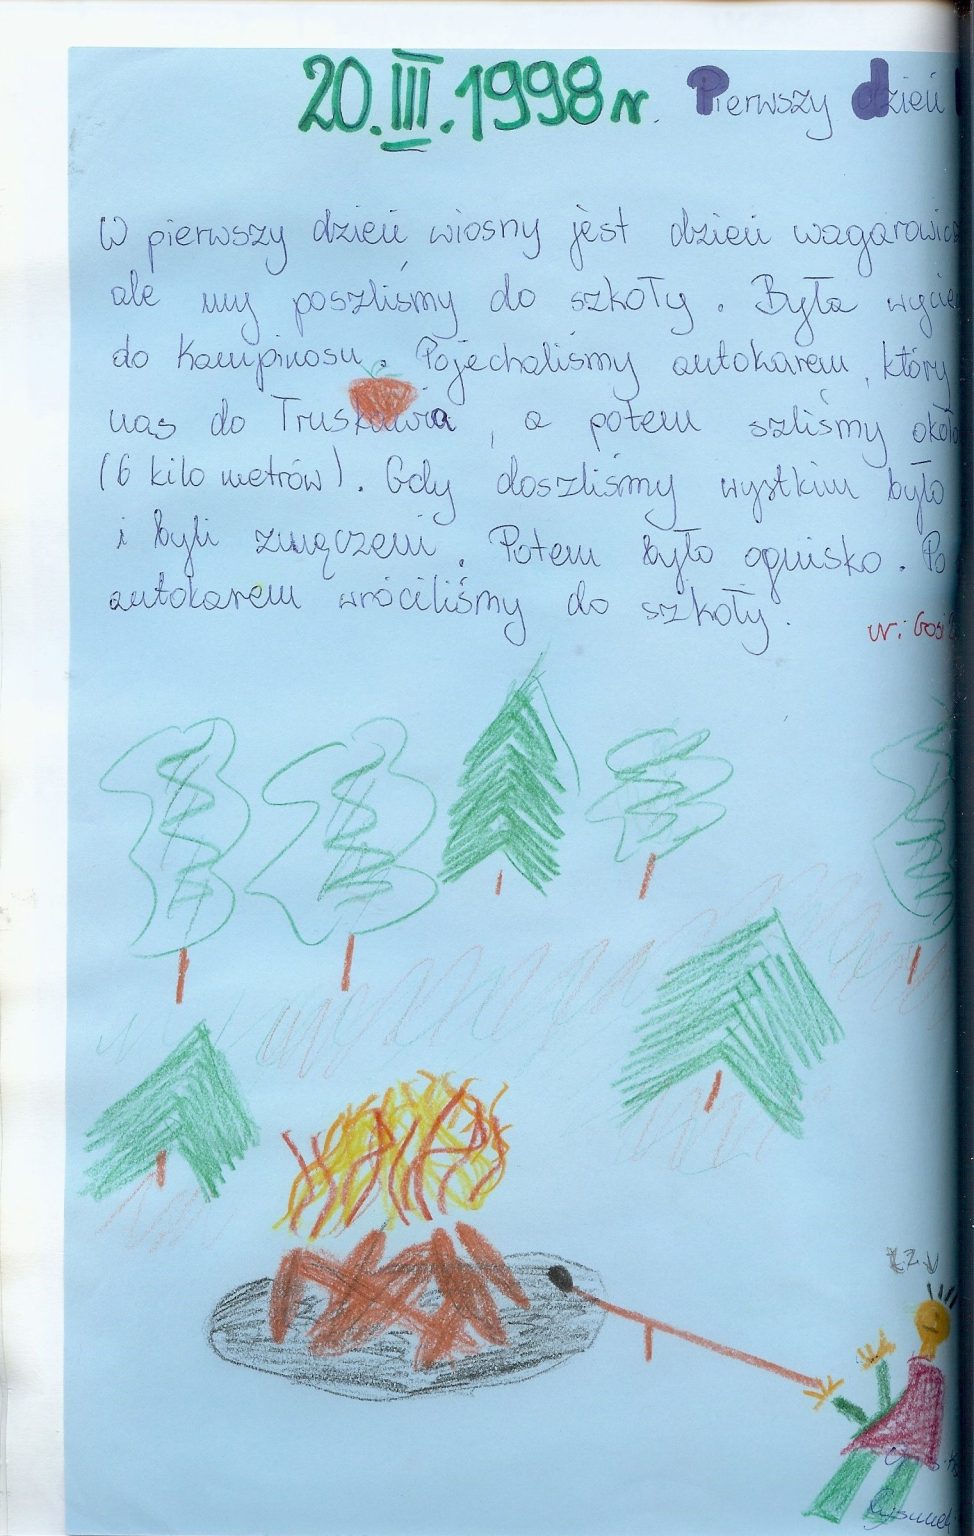 20.III.1998r. Pierwszy dzień
W pierwszy dzień wiosny jest dzień
ale my poszliśmy do szkoły. Była
do Kampinosu. Pojechaliśmy autokarem, który
nas do Truskawia, a potem szliśmy
(6 kilo metrów). Gdy doszliśmy wystkim było
i byli zmęczeni. Potem było ognisko.
autokarem wróciliśmy do szkoły.